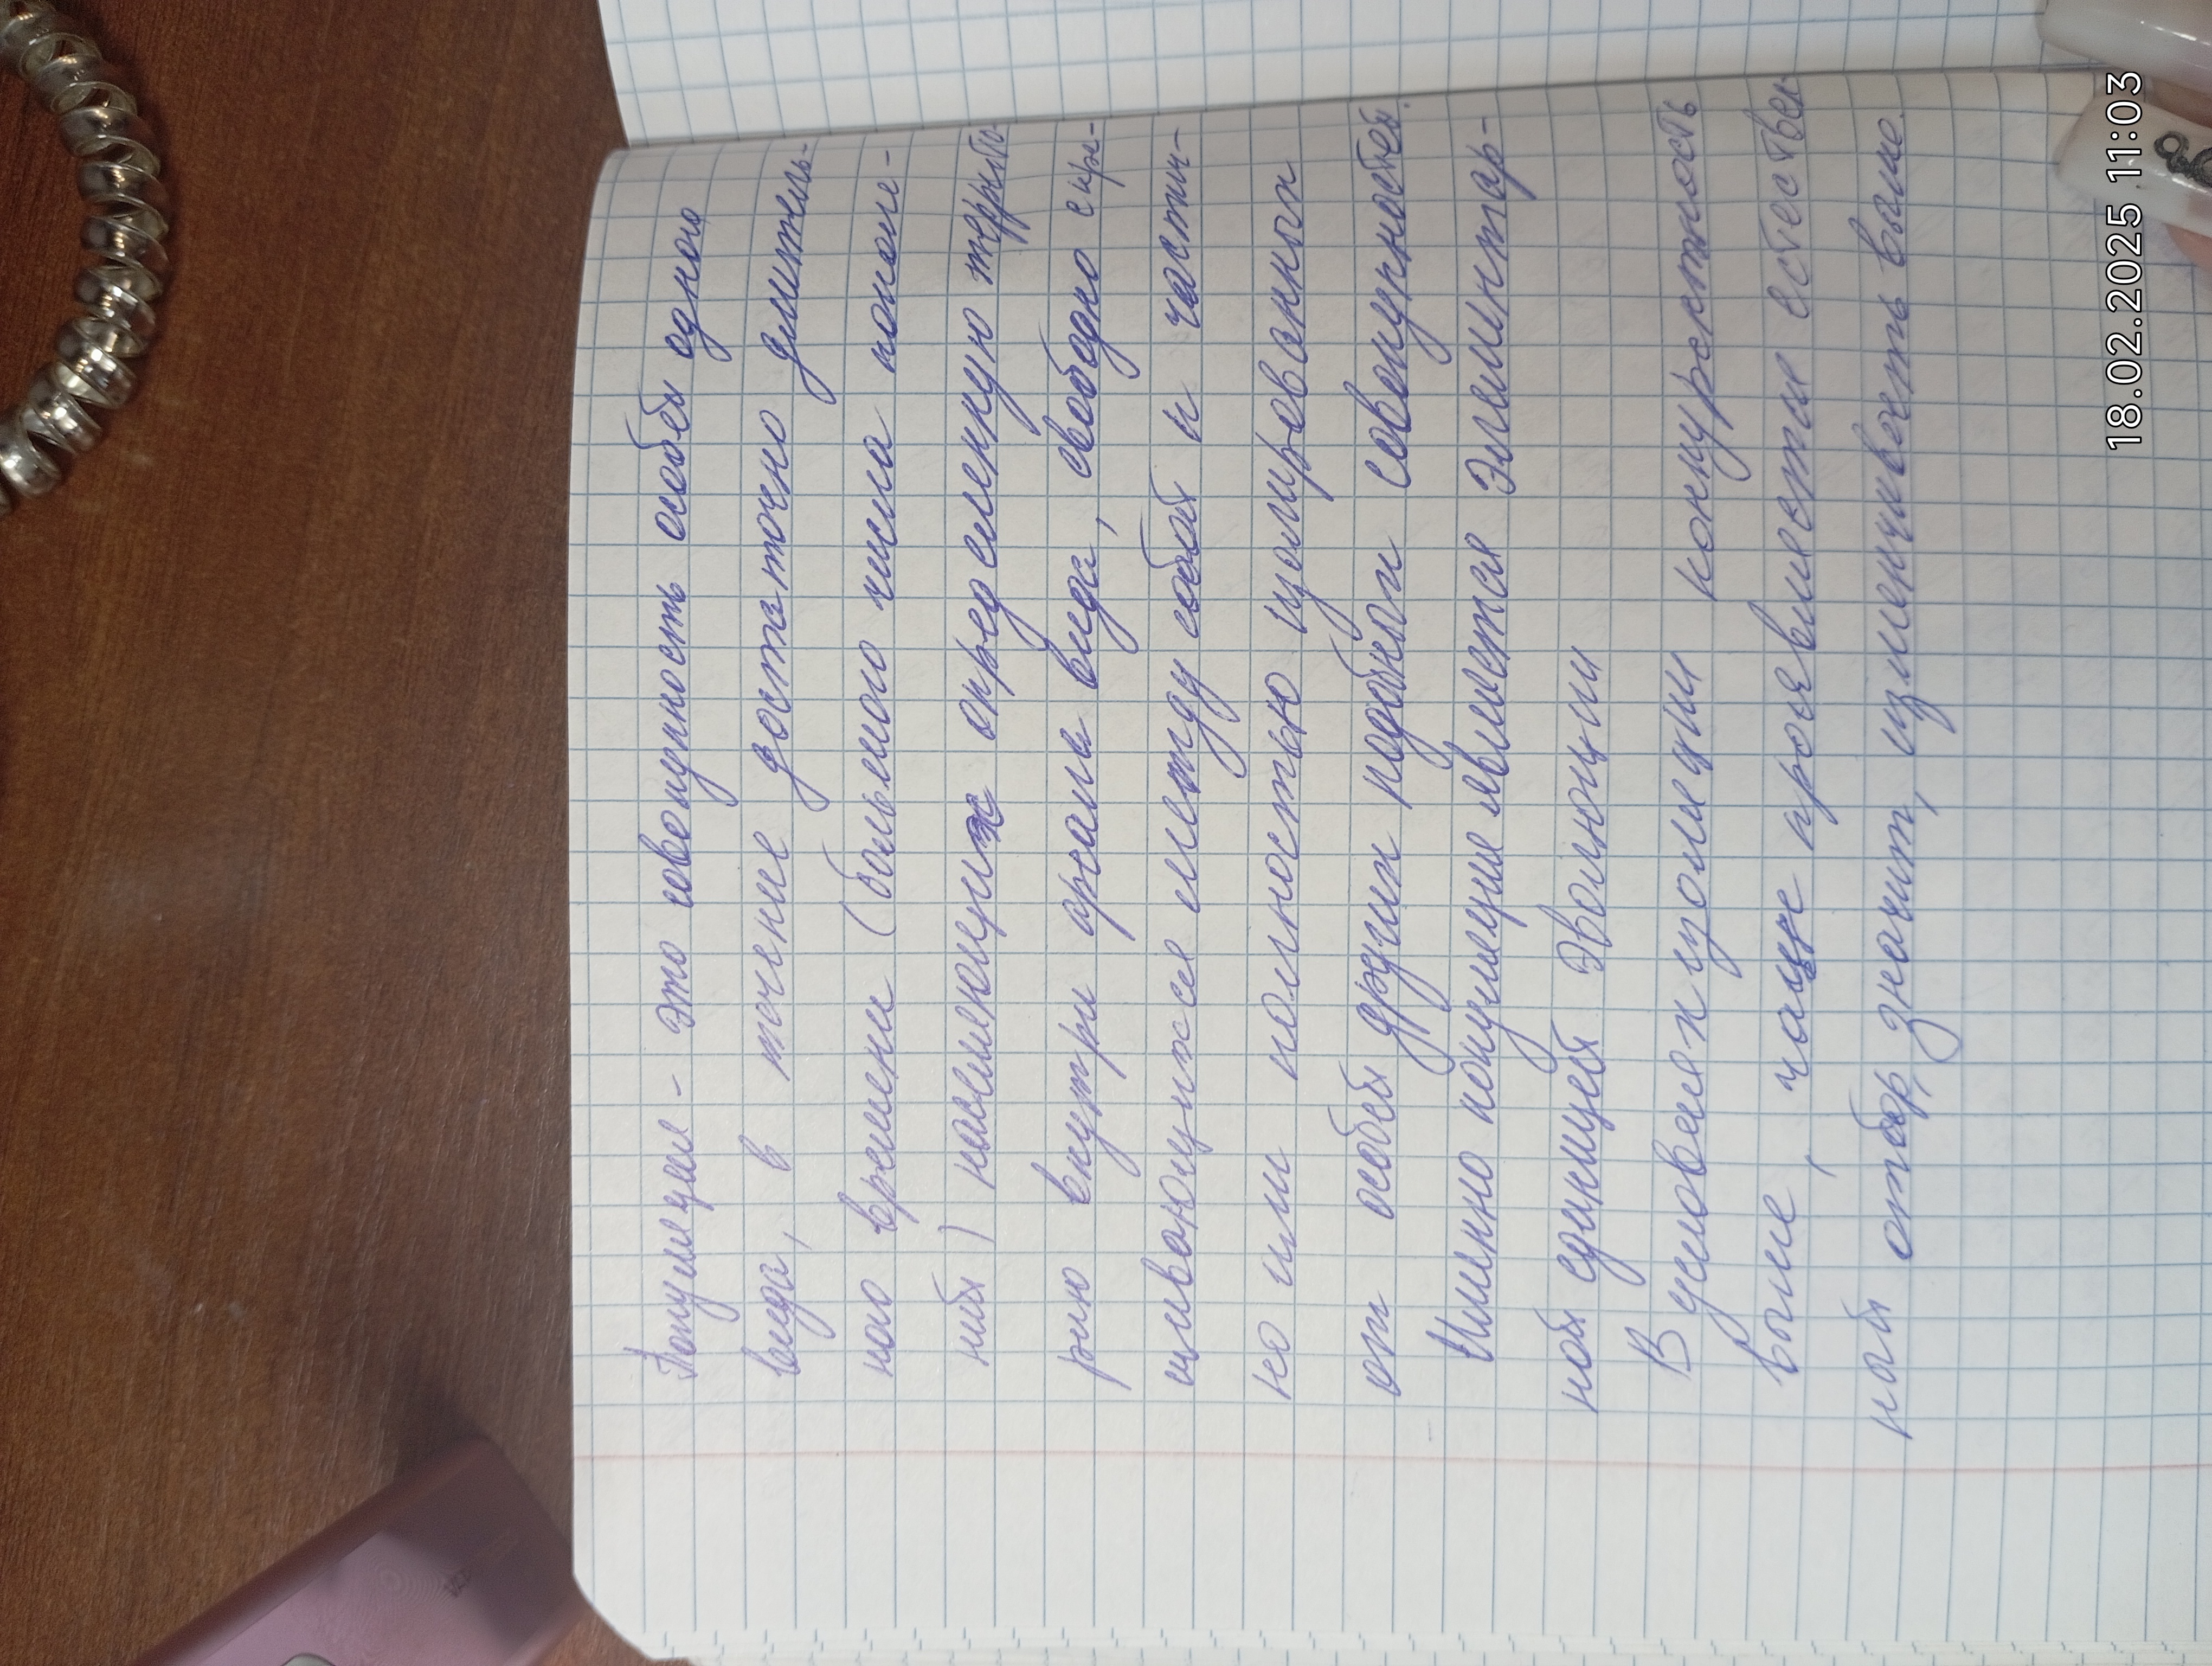 Популяция - это совокупность особей одного
вида, в течение достаточно длитель-
ного времени (большого числа поколе-
ний) населяющих определенную террито-
рию внутри ареала вида, свободно скре-
щивающихся между собой и частич-
но или полностью изолированных
от особей других подобных совокупностей.
Именно популяция является элементар-
ной единицей эволюции
В условиях изоляции конкурентность
выше, чаще проявляется естествен-
ный отбор, значит, изменчивость выше.
18.02.2025 11:03